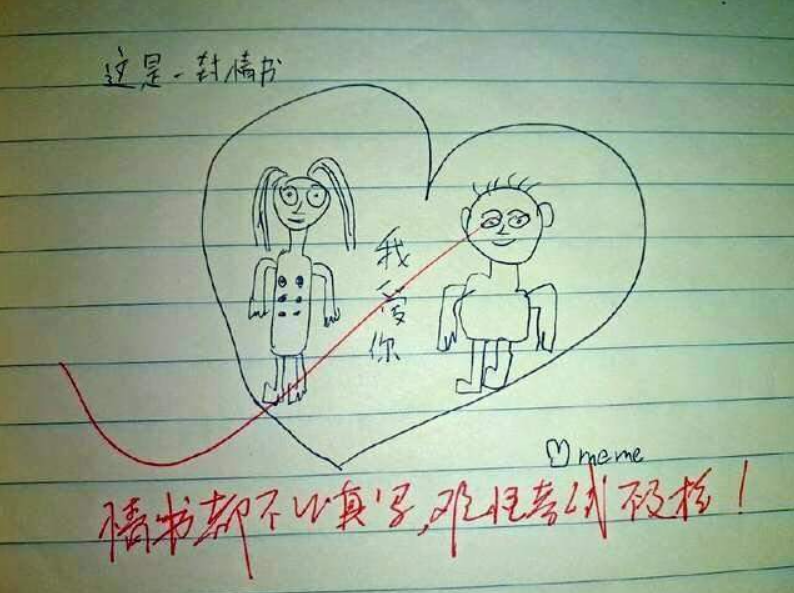 这是一封情书
我
爱
你
meme
情书都不认真写,难怪考试不及格!